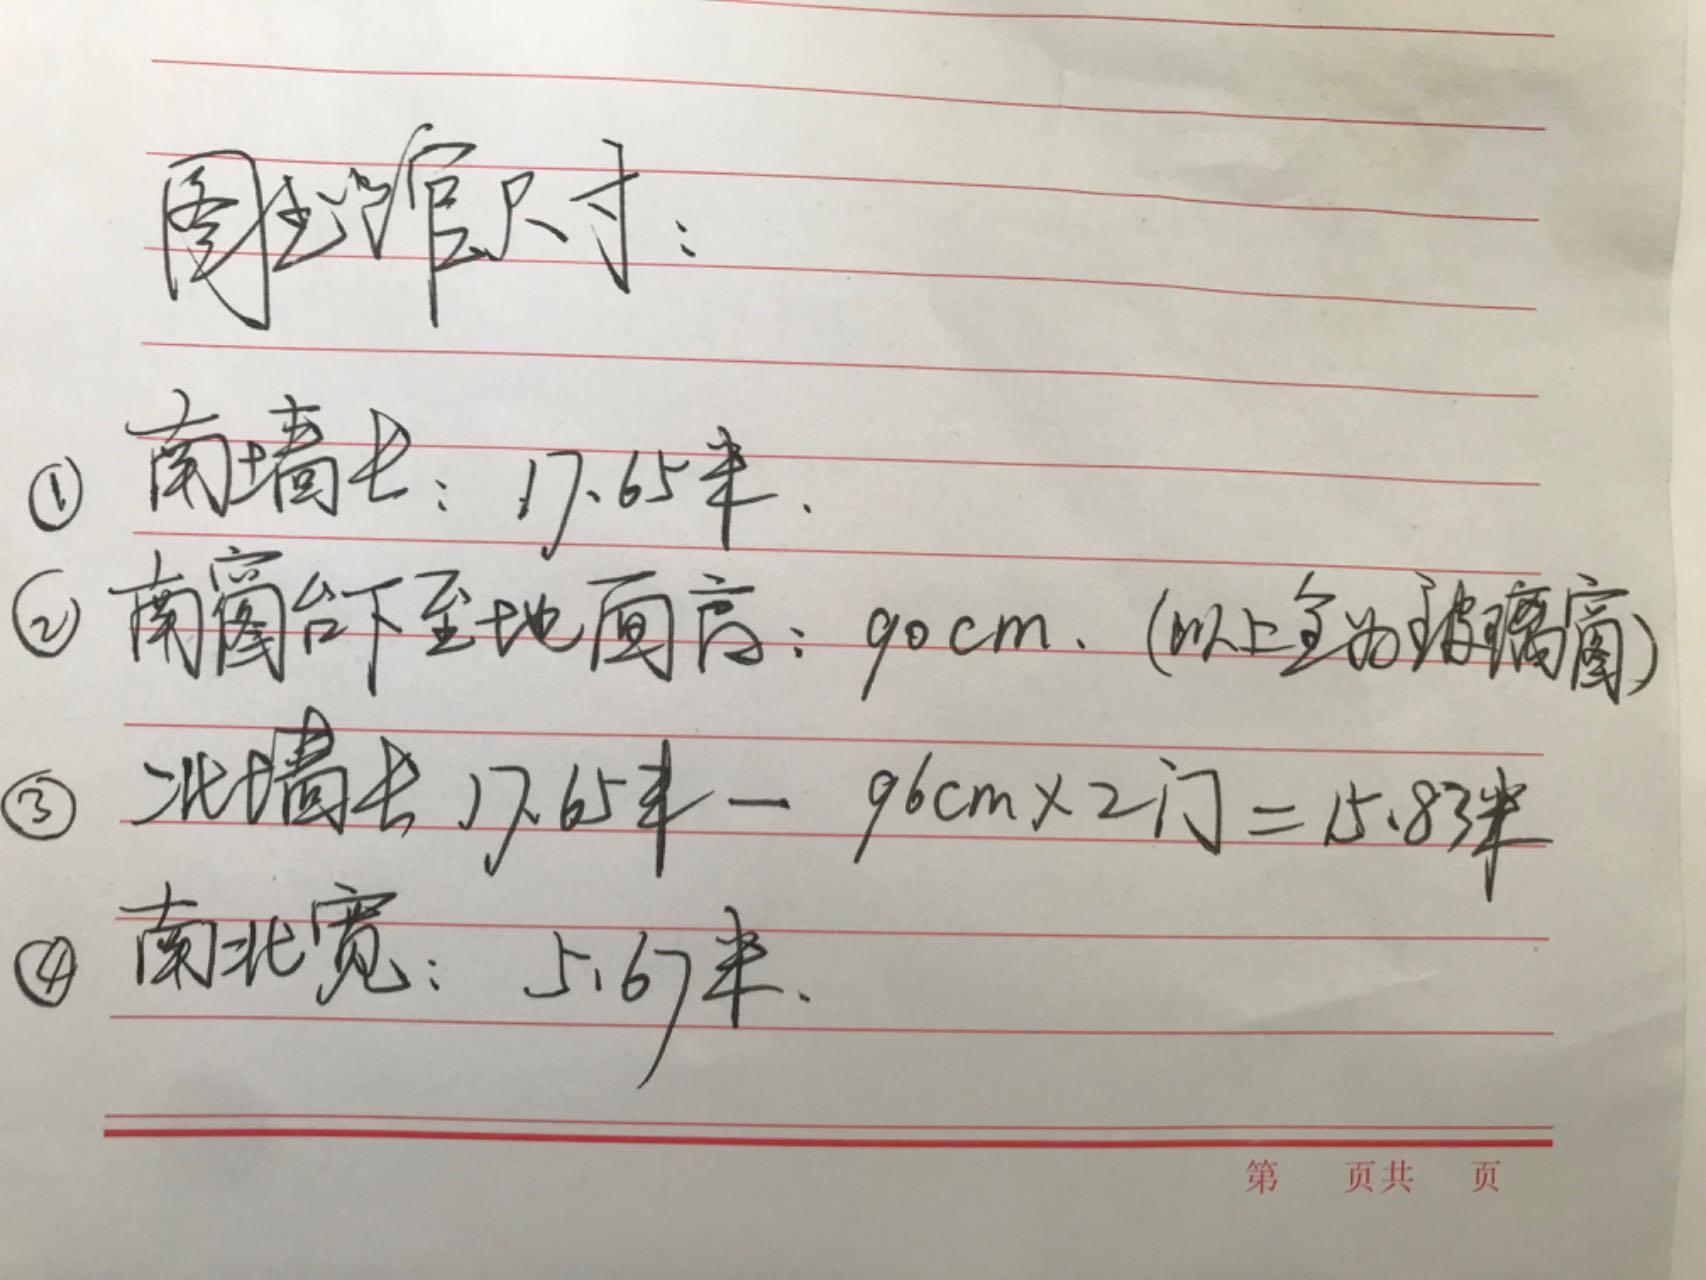 图书馆尺寸:
① 南墙长: 17.65米.
② 南窗台下至地面高: 90cm. (以上全为玻璃窗)
③ 北墙长 17.65米 - 96cm×2门=15.83米
④ 南北宽: 5.67米.
第 页共 页